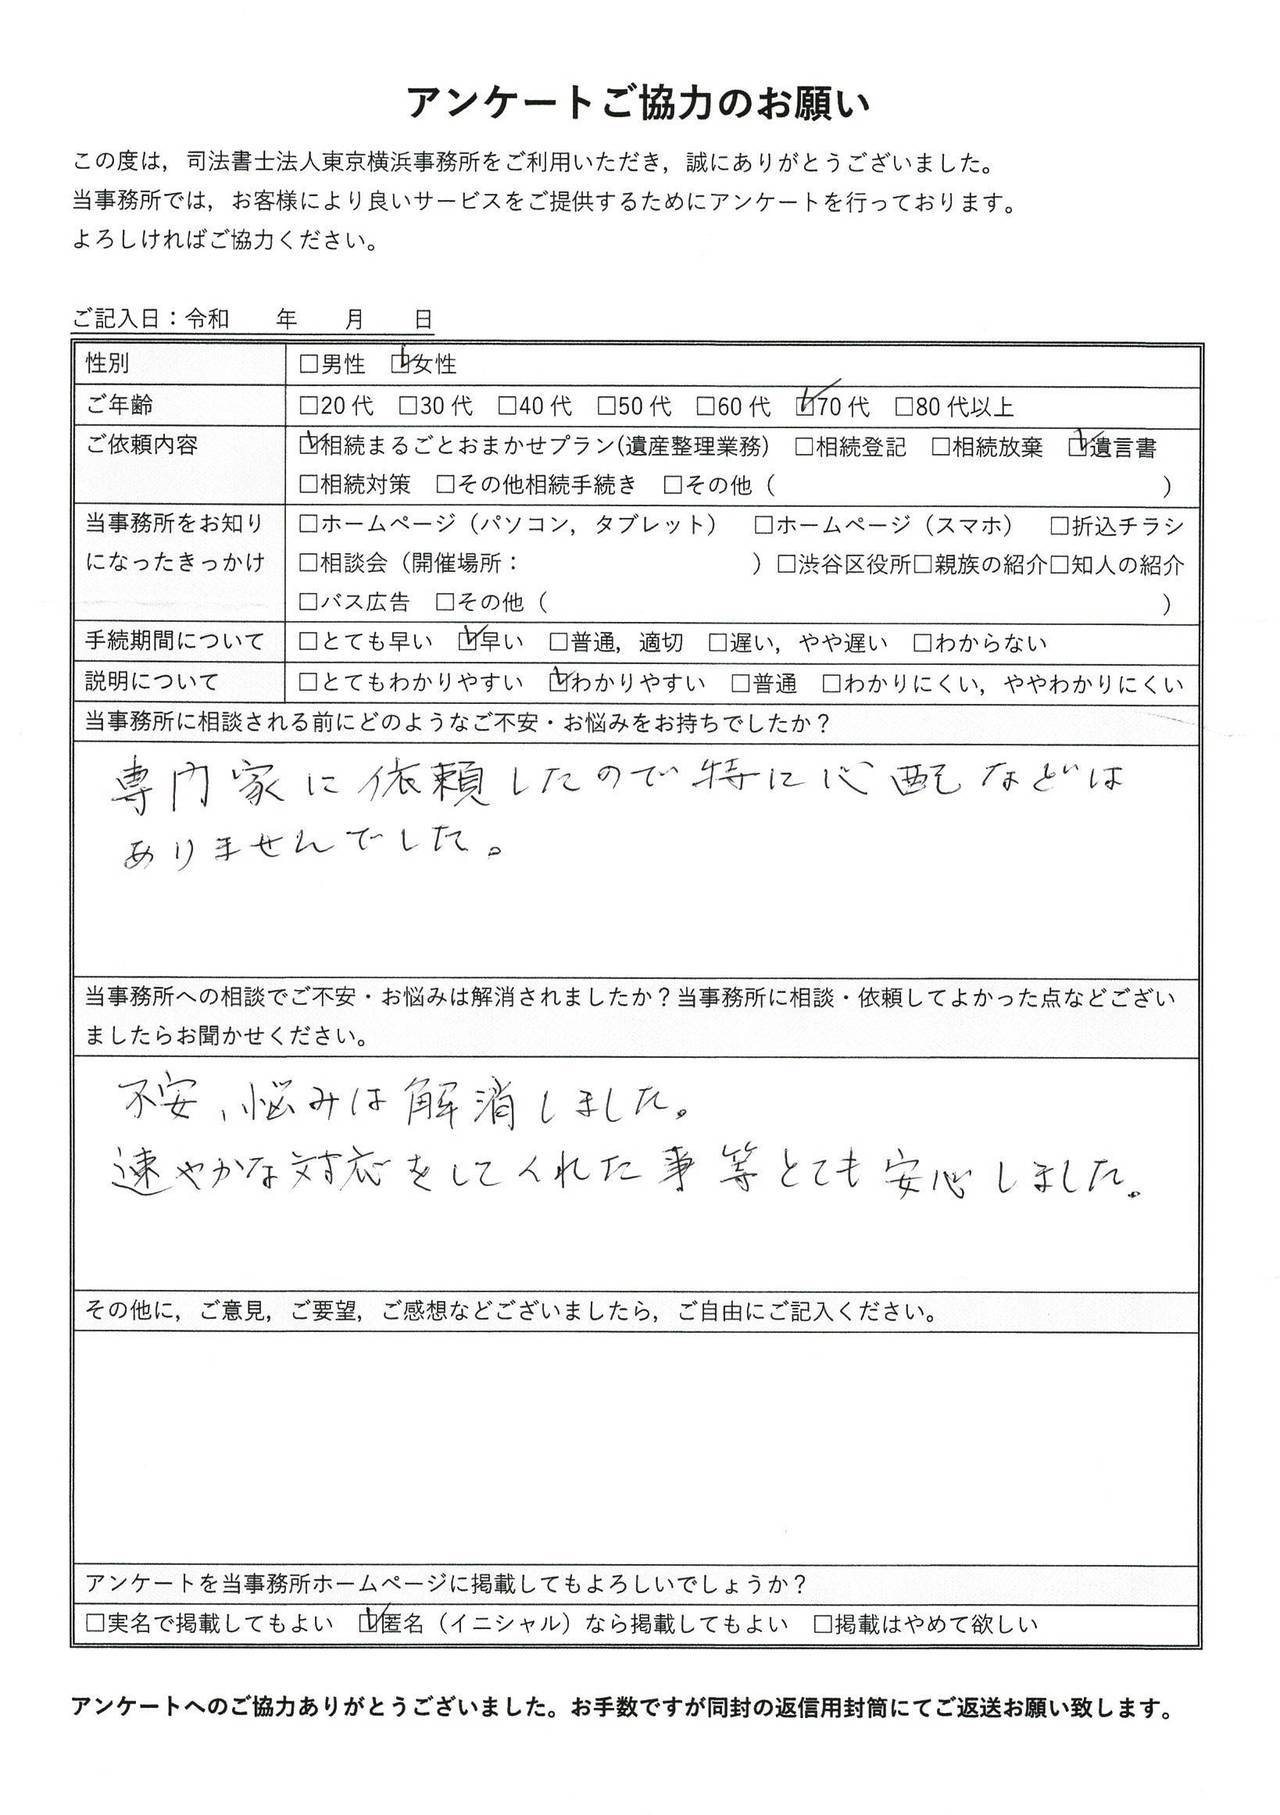 アンケートご協力のお願い
この度は，司法書士法人東京横浜事務所をご利用いただき，誠にありがとうございました。
当事務所では，お客様により良いサービスをご提供するためにアンケートを行っております。
よろしければご協力ください。
ご記入日：令和　　年　　月　　日
性別　□男性　☑女性
ご年齢　□20代　□30代　□40代　□50代　□60代　☑70代　□80代以上
ご依頼内容　☑相続まるごとおまかせプラン(遺産整理業務)　□相続登記　□相続放棄　☑遺言書
□相続対策　□その他相続手続き　□その他（　　　　　　　　　　　　　　　　　）
当事務所をお知り　□ホームページ（パソコン，タブレット）　□ホームページ（スマホ）　□折込チラシ
になったきっかけ　□相談会（開催場所：　　　　　　　　　　）□渋谷区役所□親族の紹介□知人の紹介
□バス広告　□その他（　　　　　　　　　　　　　　　　　　　　　　　　　　　）
手続期間について　□とても早い　☑早い　□普通，適切　□遅い，やや遅い　□わからない
説明について　□とてもわかりやすい　☑わかりやすい　□普通　□わかりにくい，ややわかりにくい
当事務所に相談される前にどのようなご不安・お悩みをお持ちでしたか？
専門家に依頼したので特に心配などは
ありませんでした。
当事務所への相談でご不安・お悩みは解消されましたか？当事務所に相談・依頼してよかった点などござい
ましたらお聞かせください。
不安、悩みは解消しました。
速やかな対応をしてくれた事等とても安心しました。
その他に，ご意見，ご要望，ご感想などございましたら，ご自由にご記入ください。
アンケートを当事務所ホームページに掲載してもよろしいでしょうか？
□実名で掲載してもよい　☑匿名（イニシャル）なら掲載してもよい　□掲載はやめて欲しい
アンケートへのご協力ありがとうございました。お手数ですが同封の返信用封筒にてご返送お願い致します。